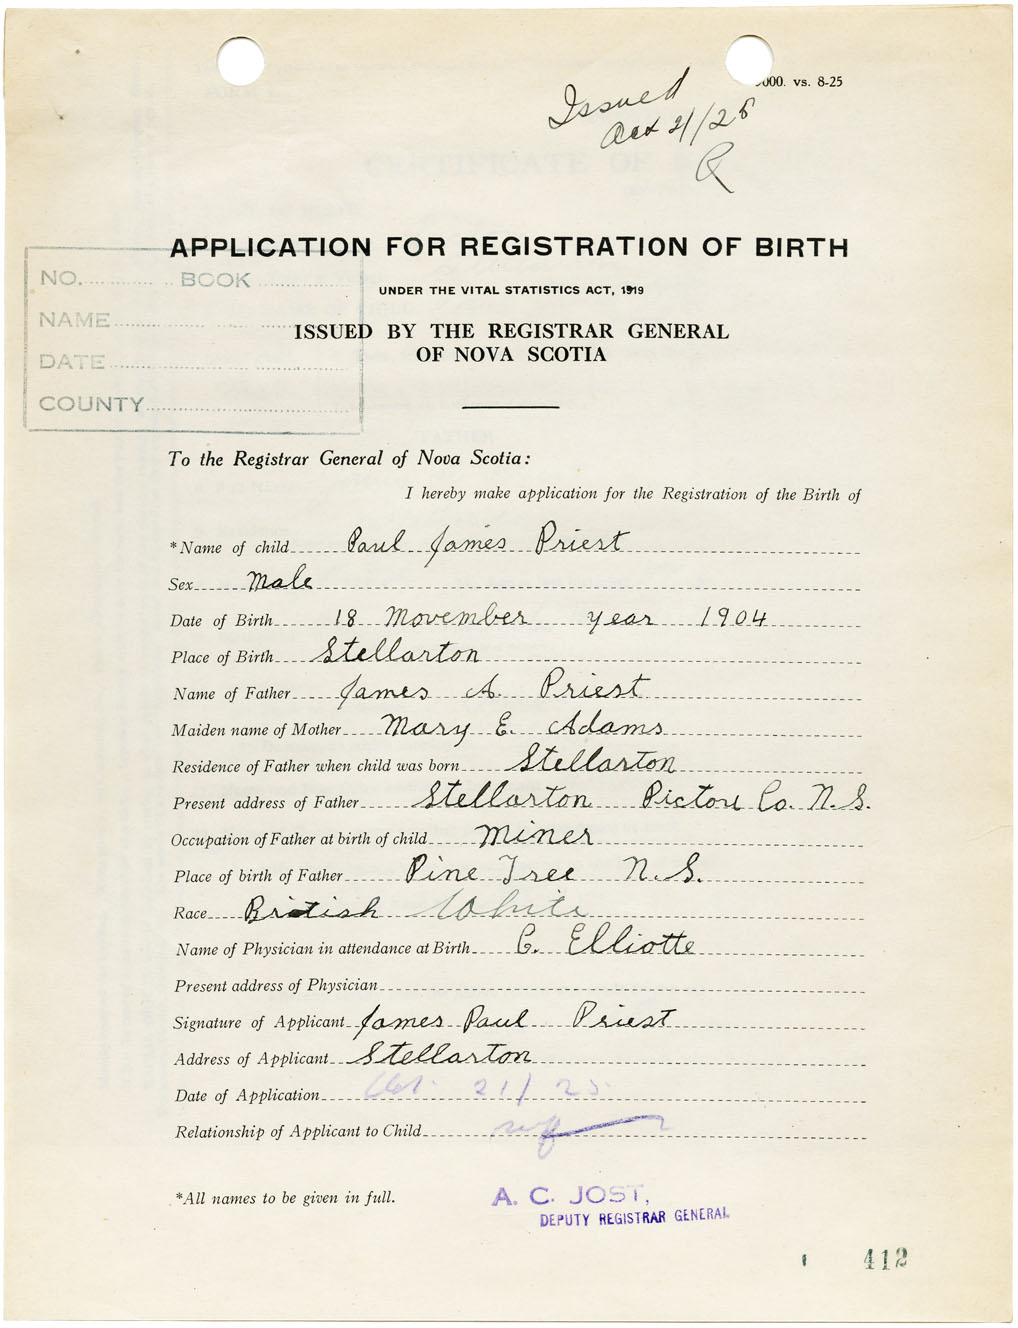 000. vs. 8-25
Issued
Oct 21/25
APPLICATION FOR REGISTRATION OF BIRTH
UNDER THE VITAL STATISTICS ACT, 1919
ISSUED BY THE REGISTRAR GENERAL
OF NOVA SCOTIA
NO. BOOK
NAME
DATE
COUNTY
To the Registrar General of Nova Scotia:
I hereby make application for the Registration of the Birth of
*Name of child Paul James Priest
Sex Male
Date of Birth 18 November year 1904
Place of Birth Stellarton
Name of Father James A. Priest
Maiden name of Mother Mary E. Adams
Residence of Father when child was born Stellarton
Present address of Father Stellarton Pictou Co. N.S.
Occupation of Father at birth of child Miner
Place of birth of Father Pine Tree N.S.
Race British White
Name of Physician in attendance at Birth C. Elliotte
Present address of Physician
Signature of Applicant James Paul Priest
Address of Applicant Stellarton
Date of Application Oct. 21/25
Relationship of Applicant to Child
*All names to be given in full.
A. C. JOST,
DEPUTY REGISTRAR GENERAL
412